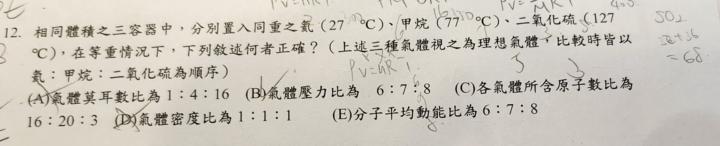 12. 相同體積之三容器中，分別置入同重之氦（27 ℃）、甲烷（77 ℃）、二氧化硫（127
℃），在等重情況下，下列敘述何者正確？（上述三種氣體視之為理想氣體，比較時皆以
氦：甲烷：二氧化硫為順序）
(A)氣體莫耳數比為 1：4：16 (B)氣體壓力比為 6：7：8 (C)各氣體所含原子數比為
16：20：3 (D)氣體密度比為 1：1：1 (E)分子平均動能比為 6：7：8
SO₂
PV=nRT